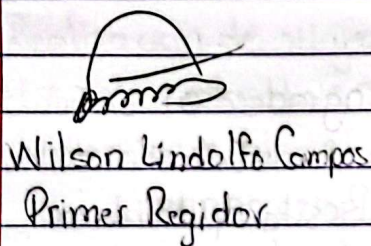 Wilson Lindolfo Campos
Primer Regidor